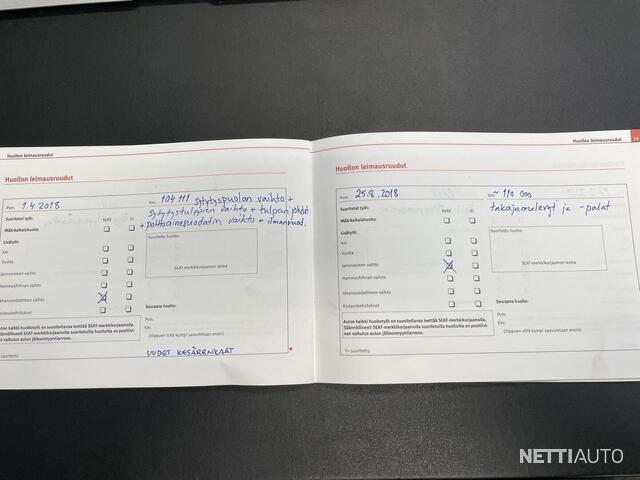 Huollon leimausruudut
Huollon leimausruudut
Pvm. 1.4.2018
Km 104 111 Sytytyspuolan vaihto +
sytytystulppien vaihto + tulpan johdot
+ polttoainesuodatin vaihto + ilmansuod.
Suoritetut työt:
Kyllä
Ei
Määräaikaishuolto
Lisätyöt:
Km
Vuotta
Jarrunesteen vaihto
Hammashihnan vaihto
Ilmansuodattimen vaihto
Korjauskehotukset
Suoritettu huolto:
SEAT-merkkikorjaamon leima
Seuraava huolto:
Pvm.
Km
(riippuen siitä kumpi saavutetaan ensin)
Auton kaikki huoltotyöt on suoritettava SEAT-merkkikorjaamolla.
Säännöllisesti SEAT-merkkikorjaamolla suoritetuilla huolloilla on positiivi-
nen vaikutus auton jälleenmyyntiarvoon.
= suoritettu
UUDET KESÄRENKAAT
Huollon leimausruudut
79
Huollon leimausruudut
Pvm. 25.8.2018
Km ~ 110 000
takajarrulevyt ja -palat
Suoritetut työt:
Kyllä
Ei
Määräaikaishuolto
Lisätyöt:
Km
Vuotta
Jarrunesteen vaihto
Hammashihnan vaihto
Ilmansuodattimen vaihto
Korjauskehotukset
Suoritettu huolto:
SEAT-merkkikorjaamon leima
Seuraava huolto:
Pvm.
Km
(riippuen siitä kumpi saavutetaan ensin)
Auton kaikki huoltotyöt on suoritettava SEAT-merkkikorjaamolla.
Säännöllisesti SEAT-merkkikorjaamolla suoritetuilla huolloilla on positiivi-
nen vaikutus auton jälleenmyyntiarvoon.
= suoritettu
NETTIAUTO